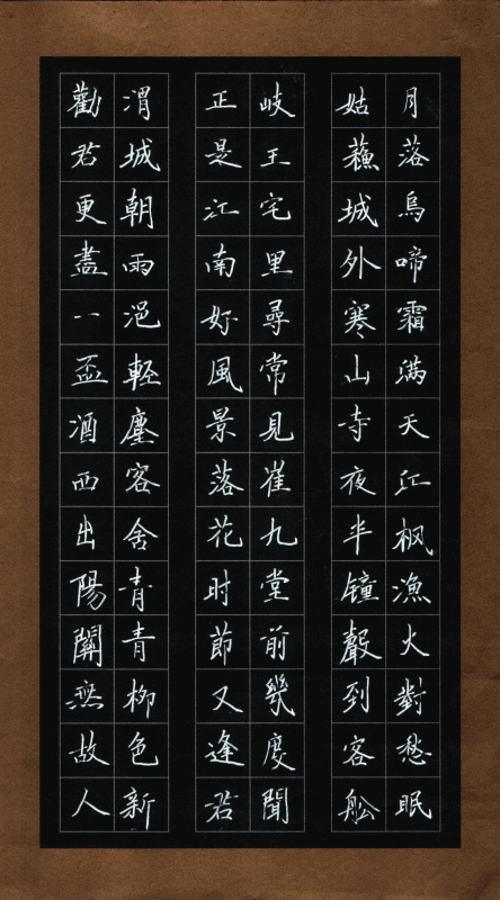 月落烏啼霜滿天江枫漁火對愁眠
姑蘓城外寒山寺夜半鐘聲到客舩
岐王宅里尋常見崔九堂前幾度聞
正是江南好風景落花时節又逢君
渭城朝雨浥輕塵客舍青青柳色新
勸君更盡一盃酒西出陽關無故人